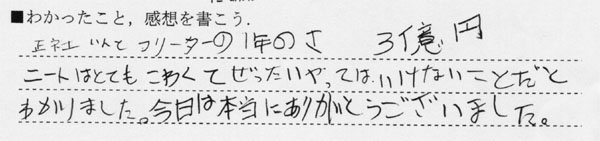 ■わかったこと，感想を書こう．
正社エいんとフリーターの1年のさ 3億円
ニートはとてもこわくてぜったいやっては、いけないことだと
わかりました。今日は本当にありがとうございました。